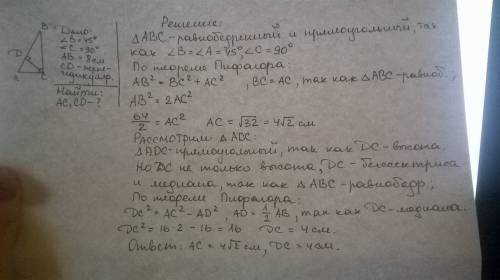 Дано:
∠B = 45°
∠C = 90°
AB = 8 см
CD - перпендикуляр.
Найти:
AC, CD - ?
B
D
C
Решение:
△ABC - равнобедренный и прямоугольный, так
как ∠B = ∠A = 45°, ∠C = 90°
По теореме Пифагора:
AB² = BC² + AC² , BC = AC, так как △ABC - равноб.,
AB² = 2AC²
64/2 = AC² AC = √32 = 4√2 см
Рассмотрим △ADC:
△ADC - прямоугольный, так как DC - высота.
Но DC не только высота, DC - бессектриса
и медиана, так как △ABC - равнобедр;
По теореме Пифагора:
DC² = AC² - AD² , AD = 1/2 AB, так как DC - медиана.
DC² = 16·2 - 16 = 16 DC = 4 см.
Ответ: AC = 4√2 см, DC = 4 см.